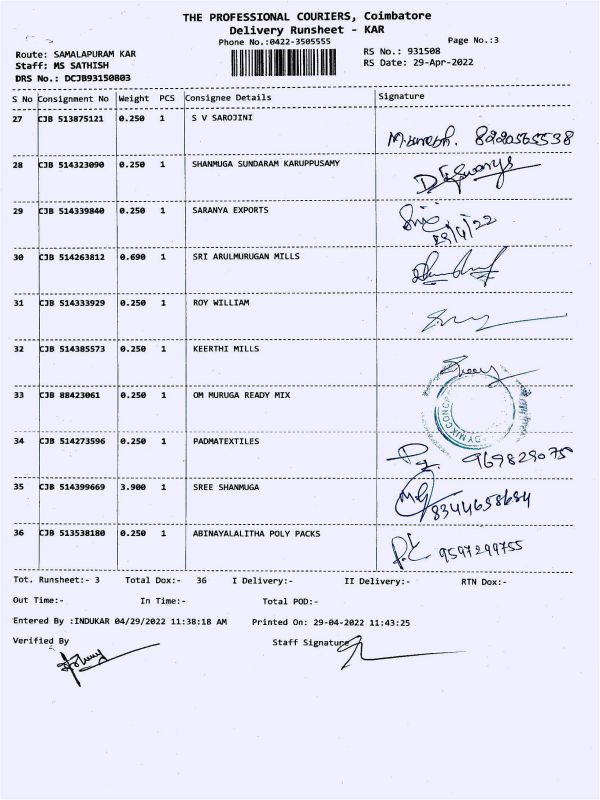 THE PROFESSIONAL COURIERS, Coimbatore
Delivery Runsheet - KAR
Phone No.:0422-3505555
Page No.:3
Route: SAMALAPURAM KAR
RS No.: 931508
Staff: MS SATHISH
RS Date: 29-Apr-2022
DRS No.: DCJB93150803
S No Consignment No Weight PCS Consignee Details Signature
27 CJB 513875121 0.250 1 S V SAROJINI
8220565538
28 CJB 514323090 0.250 1 SHANMUGA SUNDARAM KARUPPUSAMY
29 CJB 514339840 0.250 1 SARANYA EXPORTS
29/4/22
30 CJB 514263812 0.690 1 SRI ARULMURUGAN MILLS
31 CJB 514333929 0.250 1 ROY WILLIAM
32 CJB 514385573 0.250 1 KEERTHI MILLS
33 CJB 88423061 0.250 1 OM MURUGA READY MIX
34 CJB 514273596 0.250 1 PADMATEXTILES
35 CJB 514399669 3.900 1 SREE SHANMUGA
8344658684
36 CJB 513538180 0.250 1 ABINAYALALITHA POLY PACKS
9597299755
Tot. Runsheet:- 3 Total Dox:- 36 I Delivery:- II Delivery:- RTN Dox:-
Out Time:- In Time:- Total POD:-
Entered By :INDUKAR 04/29/2022 11:38:18 AM Printed On: 29-04-2022 11:43:25
Verified By Staff Signature